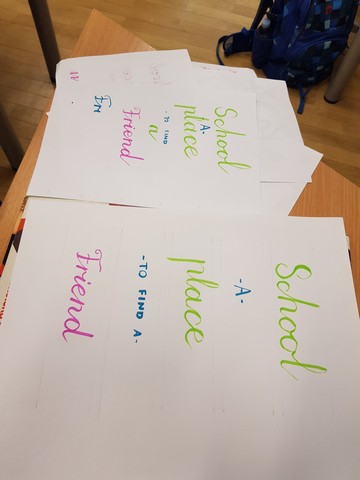 School
-A-
place
-TO FIND A-
Friend
School
-A-
place
-TO FIND
a
Friend
Fri